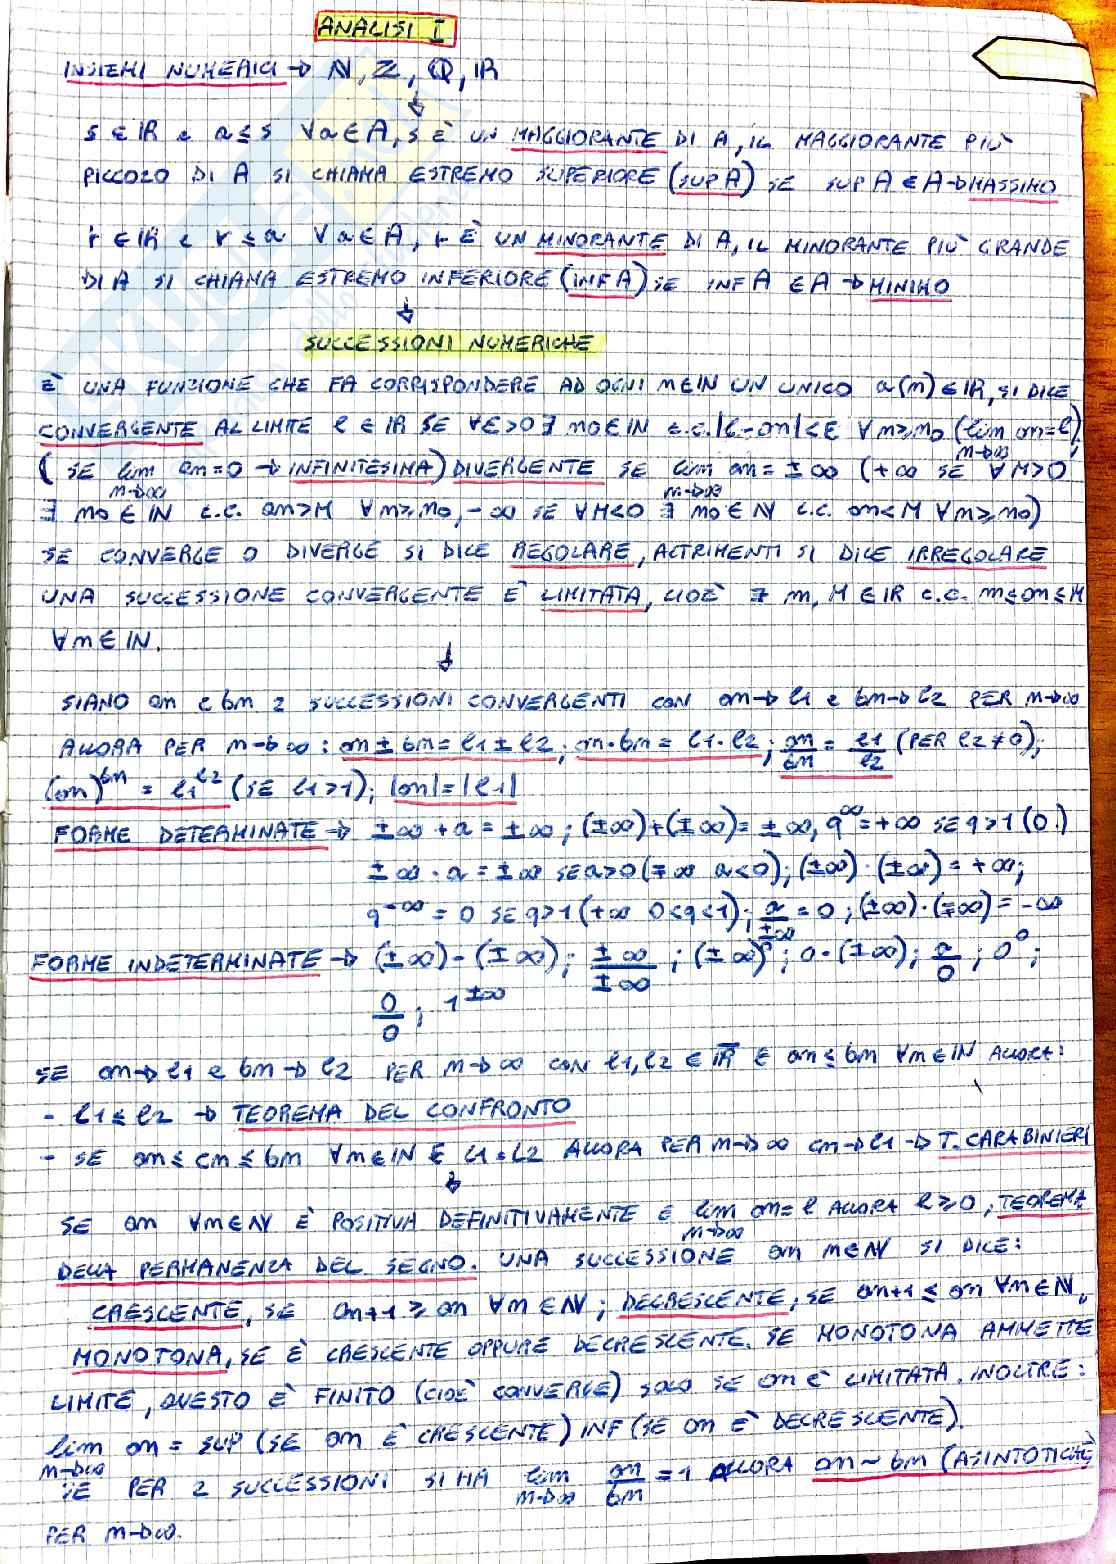 ANALISI I
INSIEMI NUMERICI → N, Z, Q, IR
s ∈ IR e a ≤ s ∀a ∈ A, s È UN MAGGIORANTE DI A, IL MAGGIORANTE PIÙ
PICCOLO DI A SI CHIAMA ESTREMO SUPERIORE (SUP A) SE SUP A ∈ A → MASSIMO
r ∈ IR e r ≤ a ∀a ∈ A, r È UN MINORANTE DI A, IL MINORANTE PIÙ GRANDE
DI A SI CHIAMA ESTREMO INFERIORE (INF A) SE INF A ∈ A → MINIMO
SUCCESSIONI NUMERICHE
È UNA FUNZIONE CHE FA CORRISPONDERE AD OGNI n ∈ IN UN UNICO a(n) ∈ IR, SI DICE
CONVERGENTE AL LIMITE l ∈ IR SE ∀ε>0 ∃ n0 ∈ IN t.c. |l-an|<ε ∀n≥n0 (lim n→∞ an=l)
(SE lim n→∞ an=0 → INFINITESIMA) DIVERGENTE SE lim n→∞ an = ±∞ (+∞ SE ∀M>0
∃ n0 ∈ IN t.c. an>M ∀n≥n0, -∞ SE ∀M<0 ∃ n0 ∈ N t.c. an<M ∀n≥n0)
SE CONVERGE O DIVERGE SI DICE REGOLARE, ALTRIMENTI SI DICE IRREGOLARE
UNA SUCCESSIONE CONVERGENTE È LIMITATA, CIOÈ ∃ m, M ∈ IR t.c. m≤an≤M
∀n ∈ IN.
SIANO an e bn 2 SUCCESSIONI CONVERGENTI CON an→l1 e bn→l2 PER n→∞
ALLORA PER n→∞: an ± bn = l1 ± l2; an·bn = l1·l2; an/bn = l1/l2 (PER l2≠0);
(an)^bn = l1^l2 (SE l1>1); |an|=|l1|
FORME DETERMINATE → ±∞ + a = ±∞; (±∞)+(±∞)= ±∞, q^∞=+∞ SE q>1 (0.)
±∞ · a = ±∞ SE a>0 (∓∞ a<0); (±∞)·(±∞) = +∞;
q^-∞ = 0 SE q>1 (+∞ 0<q<1); a/±∞ = 0; (±∞)·(∓∞) = -∞
FORME INDETERMINATE → (±∞)-(±∞); ±∞/±∞; (±∞)^0; 0·(±∞); a/0; 0^0;
0/0; 1^±∞
SE an→l1 e bn→l2 PER n→∞ CON l1, l2 ∈ IR E an ≤ bn ∀n ∈ IN ALLORA:
- l1 ≤ l2 → TEOREMA DEL CONFRONTO
- SE an ≤ cn ≤ bn ∀n ∈ IN E l1=l2 ALLORA PER n→∞ cn→l1 → T. CARABINIERI
SE an ∀n∈N È POSITIVA DEFINITIVAMENTE E lim n→∞ an=l ALLORA l≥0, TEOREMA
DELLA PERMANENZA DEL SEGNO. UNA SUCCESSIONE an n∈N SI DICE:
CRESCENTE, SE an+1 ≥ an ∀n ∈ N; DECRESCENTE, SE an+1 ≤ an ∀n∈N,
MONOTONA, SE È CRESCENTE OPPURE DECRESCENTE. SE MONOTONA AMMETTE
LIMITE, QUESTO È FINITO (CIOÈ CONVERGE) SOLO SE an È LIMITATA. INOLTRE:
lim n→∞ an = SUP (SE an È CRESCENTE) INF (SE an È DECRESCENTE).
SE PER 2 SUCCESSIONI SI HA lim n→∞ an/bn = 1 ALLORA an ~ bn (ASINTOTICHE
PER n→∞.